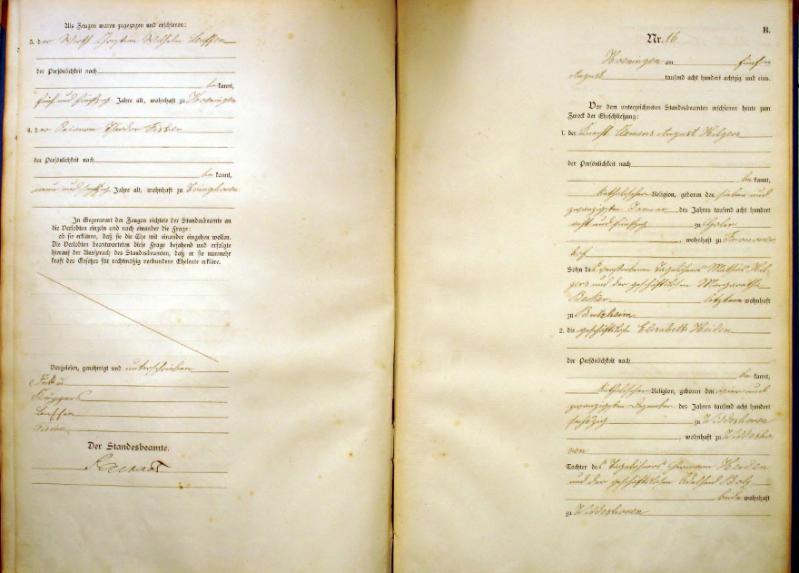 Als Zeugen waren zugezogen und erschienen:
3. der Wirth Wilhelm
der Persönlichkeit nach
be kannt,
fünf und fünfzig Jahre alt, wohnhaft zu Hoeningen
4. der Theodor
der Persönlichkeit nach
be kannt,
neun und Jahre alt, wohnhaft zu
In Gegenwart der Zeugen richtete der Standesbeamte an
die Verlobten einzeln und nach einander die Frage:
ob sie erklären, daß sie die Ehe mit einander eingehen wollen.
Die Verlobten beantworteten diese Frage bejahend und erfolgte
hierauf der Ausspruch des Standesbeamten, daß er sie nunmehr
kraft des Gesetzes für rechtmäßig verbundene Eheleute erkläre.
Vorgelesen, genehmigt und unterschrieben
Der Standesbeamte.
B.
Nr. 16
Hoeningen am fünften
August tausend acht hundert achtzig und eins.
Vor dem unterzeichneten Standesbeamten erschienen heute zum
Zweck der Eheschließung:
1. der Clemens August Hilgers
der Persönlichkeit nach
be kannt,
katholischer Religion, geboren den sieben und
zwanzigsten Januar des Jahres tausend acht hundert
und fünfzig zu
, wohnhaft zu
Sohn des verstorbenen Tagelöhners Mathias Hil-
gers und der geschäftslosen Margaretha
Becker letztere wohnhaft
zu Butzheim
2. die geschäftslose Elisabeth Heiden
der Persönlichkeit nach
be kannt,
katholischer Religion, geboren den vier und
zwanzigsten Dezember des Jahres tausend acht hundert
sechszig zu Widdeshoven
, wohnhaft zu Widdesho-
ven
Tochter des Tagelöhners Hermann Heiden
und der geschäftslosen
beide wohnhaft
zu Widdeshoven